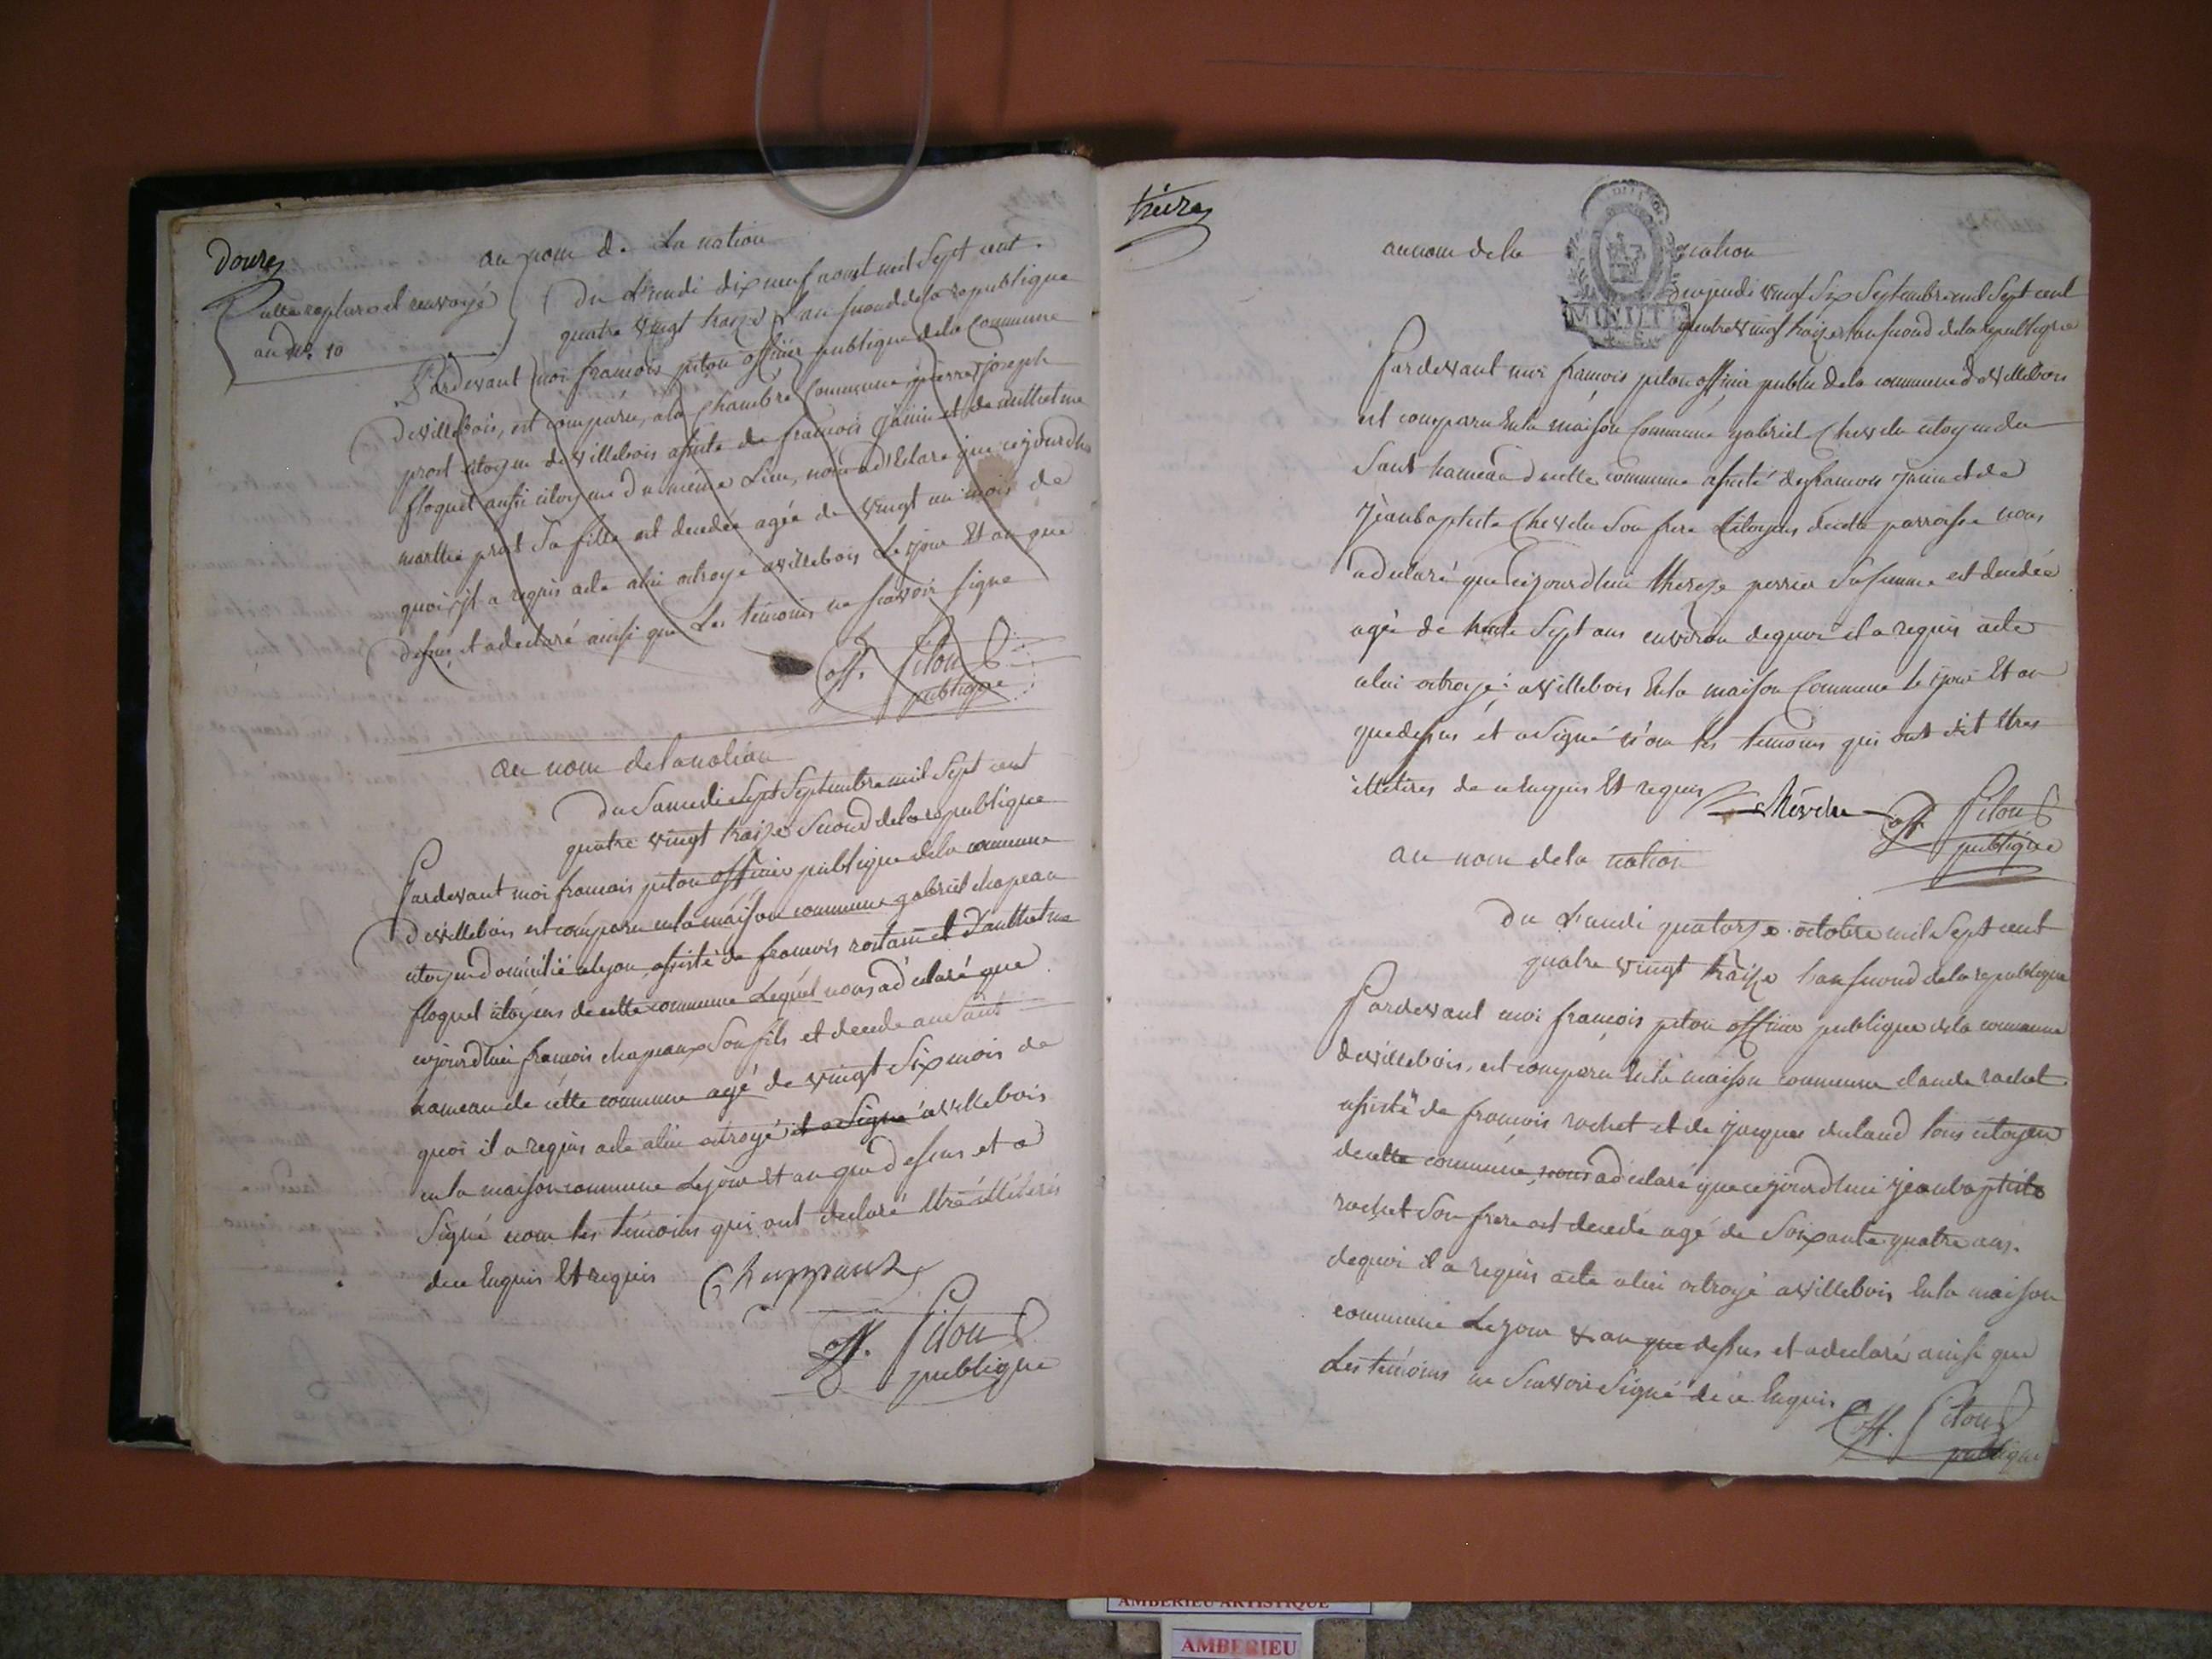 Douze
acte replacé et renvoyé
au no. 10
au nom de La nation
Du Lundi dix neuf aout mil Sept cent
quatre vingt traize L'an second de la republique
Pardevant moi francois piton officier publique de la Commune
de villebois, est comparu, a la Chambre Commune pierre joseph
prost citoyen de villebois assisté de francois janin et de anthelme
floquet aussi citoyens du même Lieu, nous a déclaré que cejourdhui
marthe prost Sa fille est decedée agée de vingt un mois de
quoi il a requis acte a lui octroyé a villebois Le jour Et an que
dessus, et a declaré ainsi que Les témoins ne scavoir signe
off. Piton
publique
au nom de la nation
Du Samedi Sept Septembre mil Sept cent
quatre vingt traize second de la republique
Pardevant moi francois piton officier publique de la commune
de villebois est comparu en la maison commune gabriel chapeau
citoyen domicilié a lyon assisté de francois rostain et d'anthelme
floquet citoyens de cette commune Lequel nous a déclaré que
cejourdhui françois chapeaux Son fils et decede au Saut
hameau de cette commune agé de vingt Six mois de
quoi il a requis acte a lui octroyé et a Signé a villebois
en la maison commune Le jour Et an que dessus et a
Signé non les témoins qui ont declaré Etre illiterés
de ce Enquis Et requis Chappaux
off. Piton
publique
treize
au nom de la nation
MINUTE
du jeudi vingt Six Septembre mil Sept cent
quatre vingt traize l'an second de la republique
Pardevant moi françois piton officier public de la commune de villebois
est comparu En la maison Commune gabriel Chevelu citoyen du
Saut hameau de cette commune assisté de francois janin et de
Jean baptiste Chevelu Son frere Citoyens de cette parroisse nous
a declaré que cejourdhui thereze perrier Sa femme est decedée
agée de trente Sept ans environ de quoi il a requis acte
a lui octroyé a villebois En la maison Commune le jour Et an
que dessus et a Signé non les temoins qui ont dit Etres
illetires de ce Enquis Et requis Chevelu off. Piton
publique
au nom de la nation
Du Lundi quatorze octobre mil Sept cent
quatre vingt traize l'an second de la republique
Pardevant moi françois piton officier publique de la commune
de villebois, est comparu En la maison commune claude rochet
assisté de francois rochet et de jacques duland tous citoyen
de cette commune, nous a déclaré que cejourdhui jean baptiste
rochet Son frere est decedé agé de Soixante quatre ans.
de quoi il a requis acte a lui octroyé a villebois En la maison
commune Le jour & an que dessus et a declaré ainsi que
Les témoins ne Scavoir Signé de ce Enquis
off. Piton
publique
AMBERIEU ARTISTIQUE
AMBERIEU